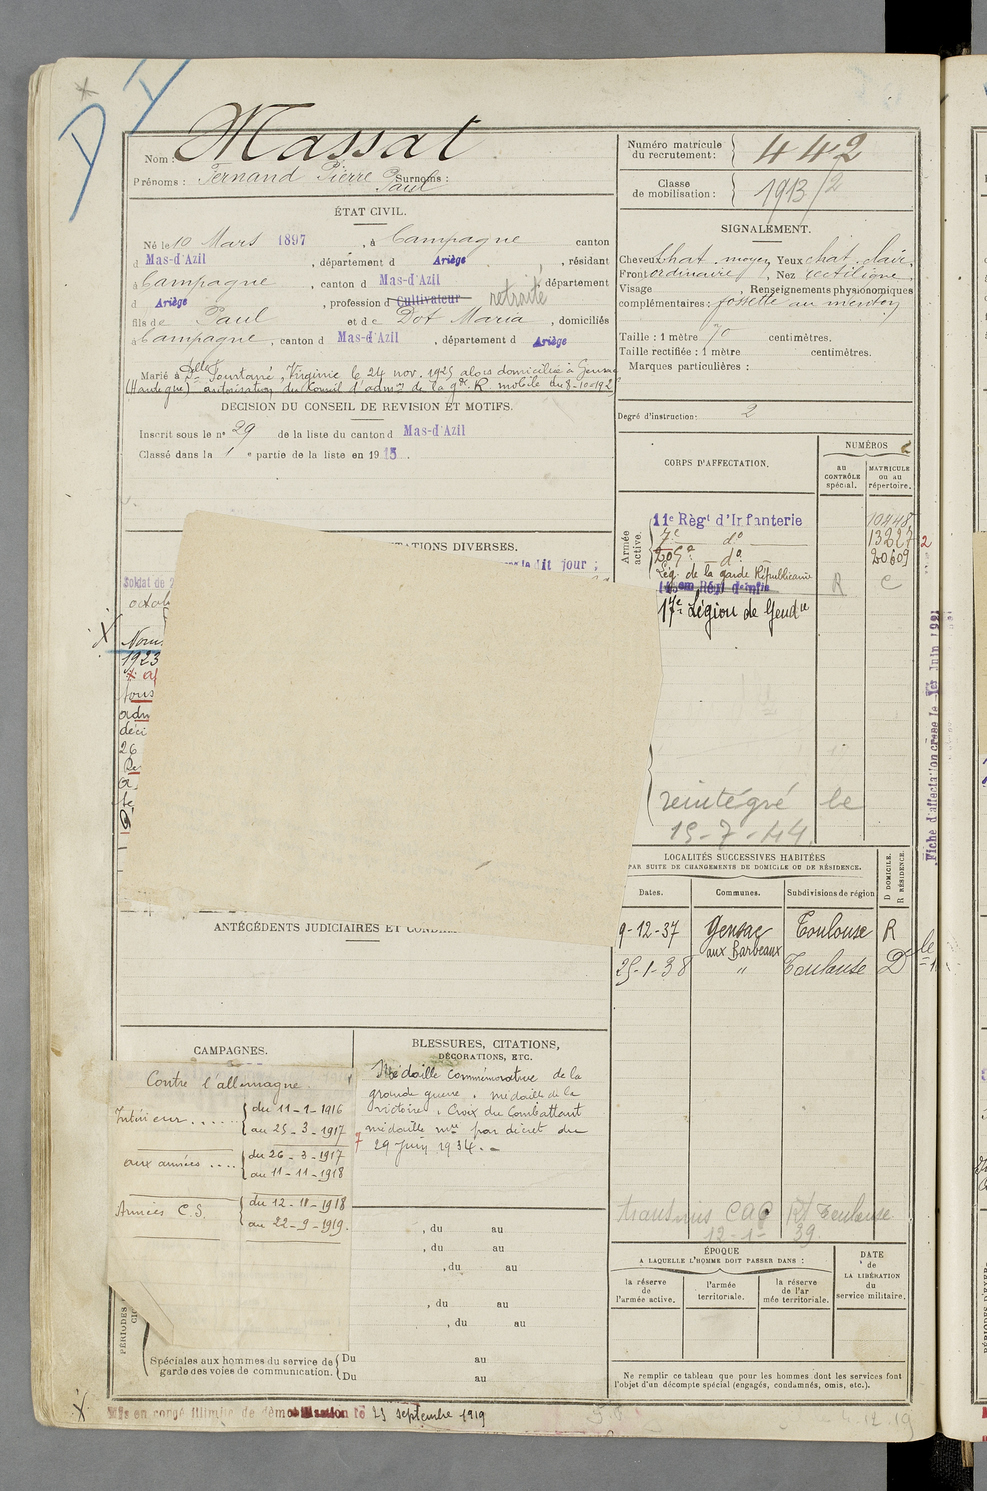 D
Nom : Massat
Prénoms : Fernand Pierre Paul Surnoms :
Numéro matricule du recrutement : 442
Classe de mobilisation : 1913/2
ÉTAT CIVIL.
Né le 10 Mars 1897, à Campagne canton
d Mas-d'Azil, département d Ariège, résidant
à Campagne, canton d Mas-d'Azil, département
d Ariège, profession d Cultivateur retraité
fils de Paul et de Dot Maria, domiciliés
à Campagne, canton d Mas-d'Azil, département d Ariège
Marié à Delle Fourtané, Virginie le 24 nov. 1925 alors domiciliée à
autorisation du Conseil d'admon de la gde R. mobile du 8-10-192
SIGNALEMENT.
Cheveux chat. moyen Yeux chat. clair
Front ordinaire, Nez rectiligne
Visage , Renseignements physionomiques
complémentaires : fossette au menton
Taille : 1 mètre 70 centimètres.
Taille rectifiée : 1 mètre centimètres.
Marques particulières :
Degré d'instruction : 2
DÉCISION DU CONSEIL DE REVISION ET MOTIFS.
Inscrit sous le n° 29 de la liste du canton d Mas-d'Azil
Classé dans la 1 e partie de la liste en 1915.
CORPS D'AFFECTATION.
NUMÉROS
au CONTRÔLE spécial.
MATRICULE ou au répertoire.
Armée active.
11e Régt d'Infanterie 10448
7e do 13227
209e do 20609
Lég. de la garde Républicaine R C
17e Légion de Gendie
réintégré le
15-7-44
TATIONS DIVERSES.
le dit jour ;
Soldat de 2
octob
Nom
1923
tous
adm
déci
26
LOCALITÉS SUCCESSIVES HABITÉES
PAR SUITE DE CHANGEMENTS DE DOMICILE OU DE RÉSIDENCE.
Dates. Communes. Subdivisions de région
D DOMICILE.
R RÉSIDENCE.
9-12-37 Gensac aux Barbeaux Toulouse R
25-1-38 " Toulouse D
transmis CAC Rt Toulouse
12-1-39
Fiche d'affectation créée le 1er Juin 1921
ANTÉCÉDENTS JUDICIAIRES ET COND
CAMPAGNES.
Contre l'allemagne.
Intérieur..... du 11-1-1916
au 25-3-1917
aux armées.... du 26-3-1917
au 11-11-1918
Armées C.S. du 12-11-1918
au 22-9-1919.
BLESSURES, CITATIONS,
DÉCORATIONS, ETC.
Médaille Commémorative de la
grande guerre, médaille de la
victoire, Croix du Combattant
médaille mre par décret du
29 Juin 1934.-
, du au
, du au
, du au
, du au
, du au
PÉRIODES
Spéciales aux hommes du service de
garde des voies de communication.
Du au
Du au
ÉPOQUE
A LAQUELLE L'HOMME DOIT PASSER DANS :
la réserve de l'armée active.
l'armée territoriale.
la réserve de l'armée territoriale.
DATE de LA LIBÉRATION du service militaire.
Ne remplir ce tableau que pour les hommes dont les services font
l'objet d'un décompte spécial (engagés, condamnés, omis, etc.).
Mis en congé illimité de démobilisation le 23 septembre 1919